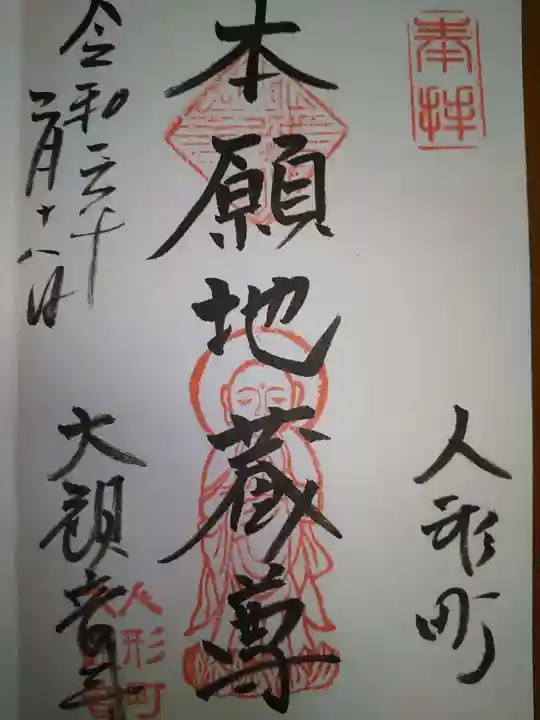 奉拝
人形町
本願地蔵尊
令和六年
二月十八日
大観音寺
人形町